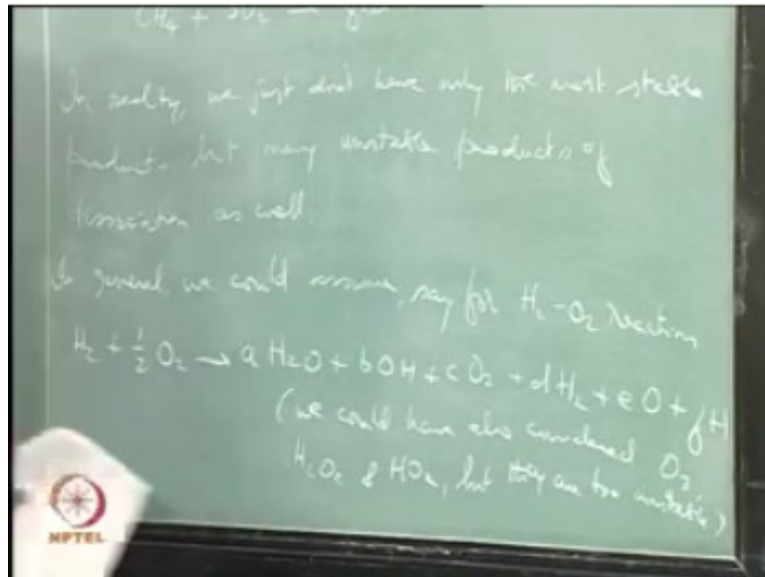 CH4 + 2O2 →
In reality, we just don't have only the most stable
products but many unstable products of
dissociation as well.
In general we could assume, say for H2-O2 reaction
H2 + 1/2 O2 → a H2O + b OH + c O2 + d H2 + e O + f H
(we could have also considered O3
H2O2 & HO2, but they are too unstable)
NPTEL